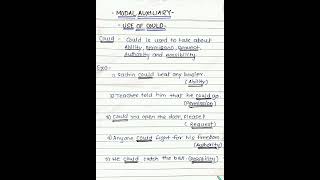 - MODAL AUXILIARY-
- USE OF COULD-
Could - Could is used to take about
Ability, permission, request,
Authority and possibility
Exp-
1. Sachin could beat any bowler.
(Ability)
2) Teacher told him that he could go.
(Permission)
3) Could you open the door, please?
(Request)
4) Anyone could fight for his freedom.
(Authority)
5) He could catch the ball. (possibility)